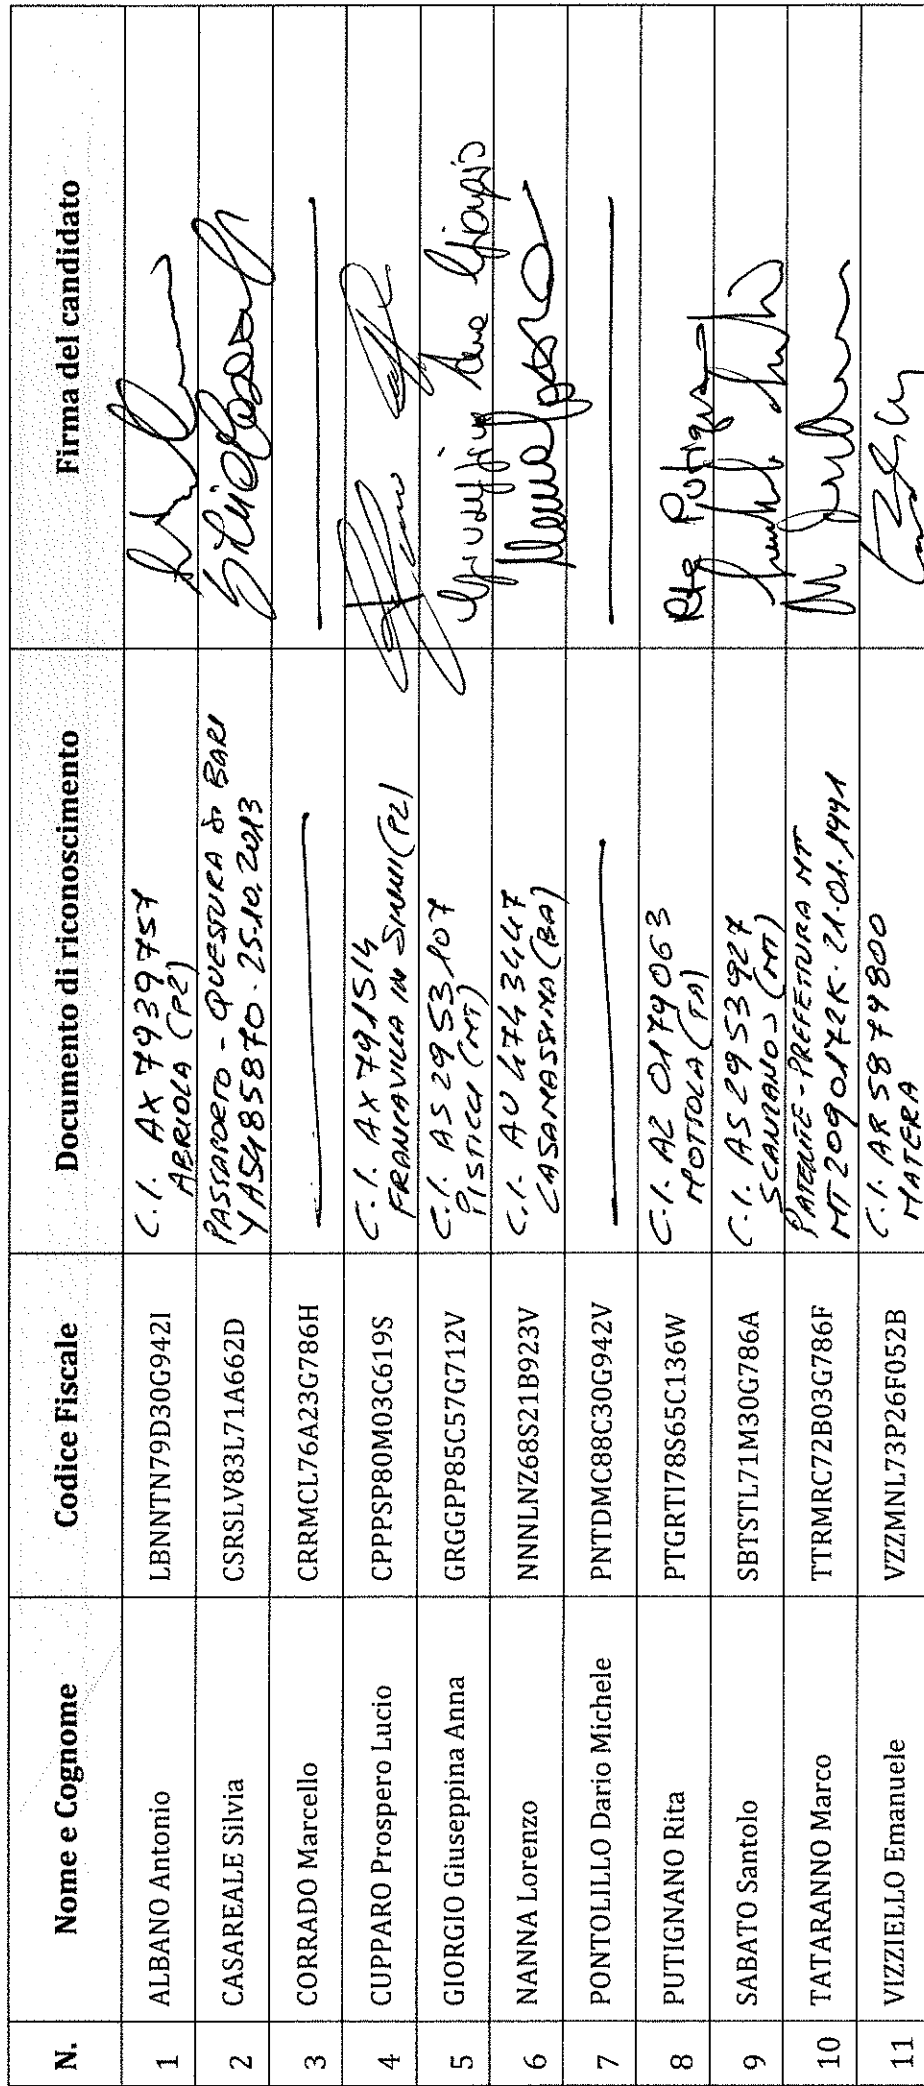 N. Nome e Cognome Codice Fiscale Documento di riconoscimento Firma del candidato
1 ALBANO Antonio LBNNTN79D30G942I C.I. AX 7939757
ABRIOLA (PZ)
2 CASAREALE Silvia CSRSLV83L71A662D PASSAPORTO - QUESTURA DI BARI
YA5485870 - 25.10.2013
3 CORRADO Marcello CRRMCL76A23G786H
4 CUPPARO Prospero Lucio CPPPSP80M03C619S C.I. AX 7491514
FRANCAVILLA IN SINNI (PZ)
5 GIORGIO Giuseppina Anna GRGGPP85C57G712V C.I. AS 2953107 Giuseppina Anna Giorgio
PISTICCI (MT)
6 NANNA Lorenzo NNNLNZ68S21B923V C.I. AU 4743447
CASAMASSIMA (BA)
7 PONTOLILLO Dario Michele PNTDMC88C30G942V
8 PUTIGNANO Rita PTGRTI78S65C136W C.I. AZ 0179063 Rita Putignano
MOTTOLA (TA)
9 SABATO Santolo SBTSTL71M30G786A C.I. AS 2953927
SCANZANO J (MT)
10 TATARANNO Marco TTRMRC72B03G786F PATENTE - PREFETTURA MT
MT2090172K - 21.01.1991
11 VIZZIELLO Emanuele VZZMNL73P26F052B C.I. AR 5879800
MATERA